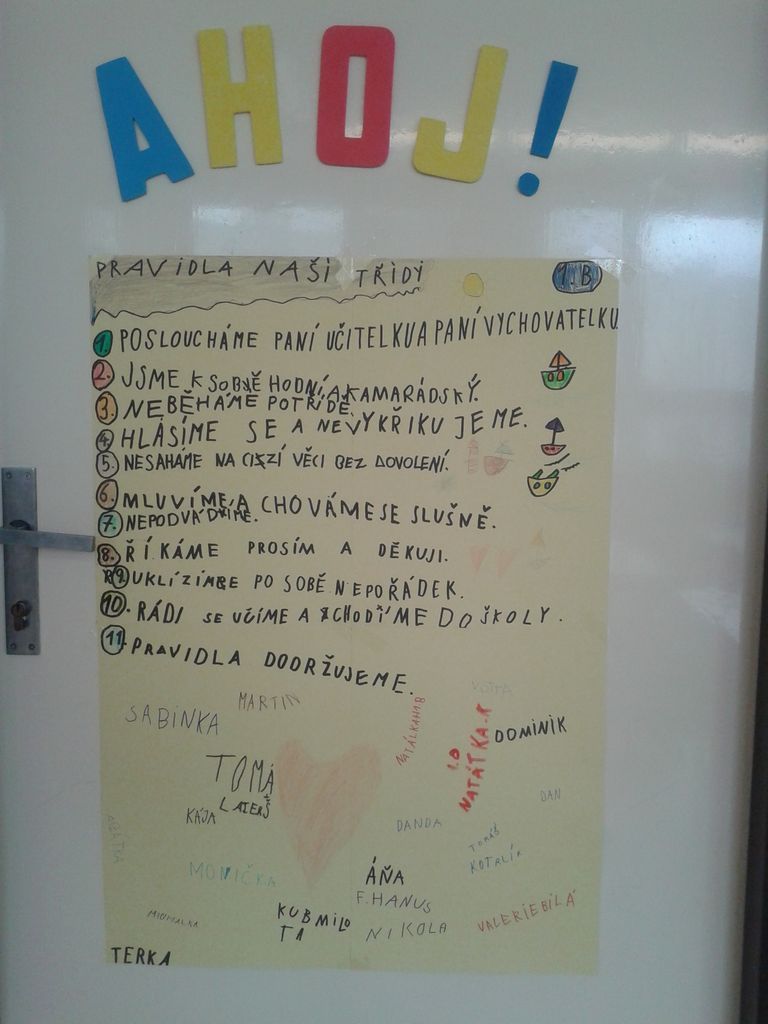 AHOJ!
PRAVIDLA NAŠI TŘÍDY
1.B
1. POSLOUCHÁME PANÍ UČITELKU A PANÍ VYCHOVATELKU
2. JSME K SOBĚ HODNÍ A KAMARÁDSKÝ.
3. NEBĚHÁME PO TŘÍDĚ.
4. HLÁSÍME SE A NEVYKŘIKUJEME.
5. NESAHÁME NA CIZÍ VĚCI BEZ DOVOLENÍ.
6. MLUVÍME A CHOVÁME SE SLUŠNĚ.
7. NEPODVÁDÍME.
8. ŘÍKÁME PROSÍM A DĚKUJI.
9. UKLÍZÍME PO SOBĚ NEPOŘÁDEK.
10. RÁDI SE UČÍME A CHODÍME DO ŠKOLY.
11. PRAVIDLA DODRŽUJEME.
MARTIN
SABINKA
DOMINIK
NATÁTKA.K
TOMÁ
KÁJA
DAN
DANDA
TOMÁŠ
KOTRLÍK
MONIČKA
ÁŇA
F.HANUS
KUBMILO
TA
NIKOLA
VALERIE BÍLÁ
TERKA